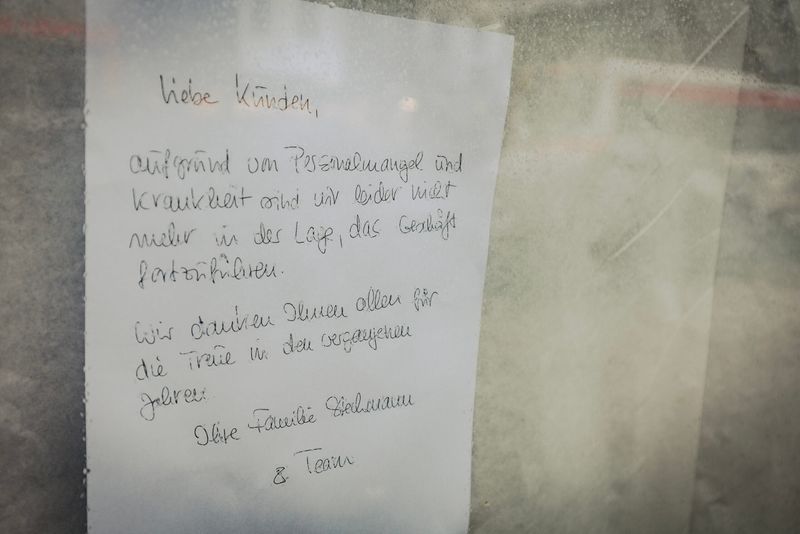 Liebe Kunden,
aufgrund von Personalmangel und
Krankheit sind wir leider nicht
mehr in der Lage, das Geschäft
fortzuführen.
Wir danken Ihnen allen für
die Treue in den vergangenen
Jahren.
Ihre Familie
& Team